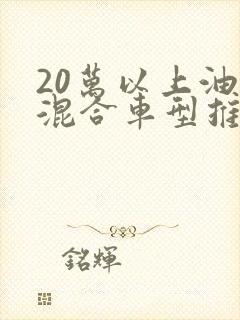 20萬以上油
混合車型推
銘輝